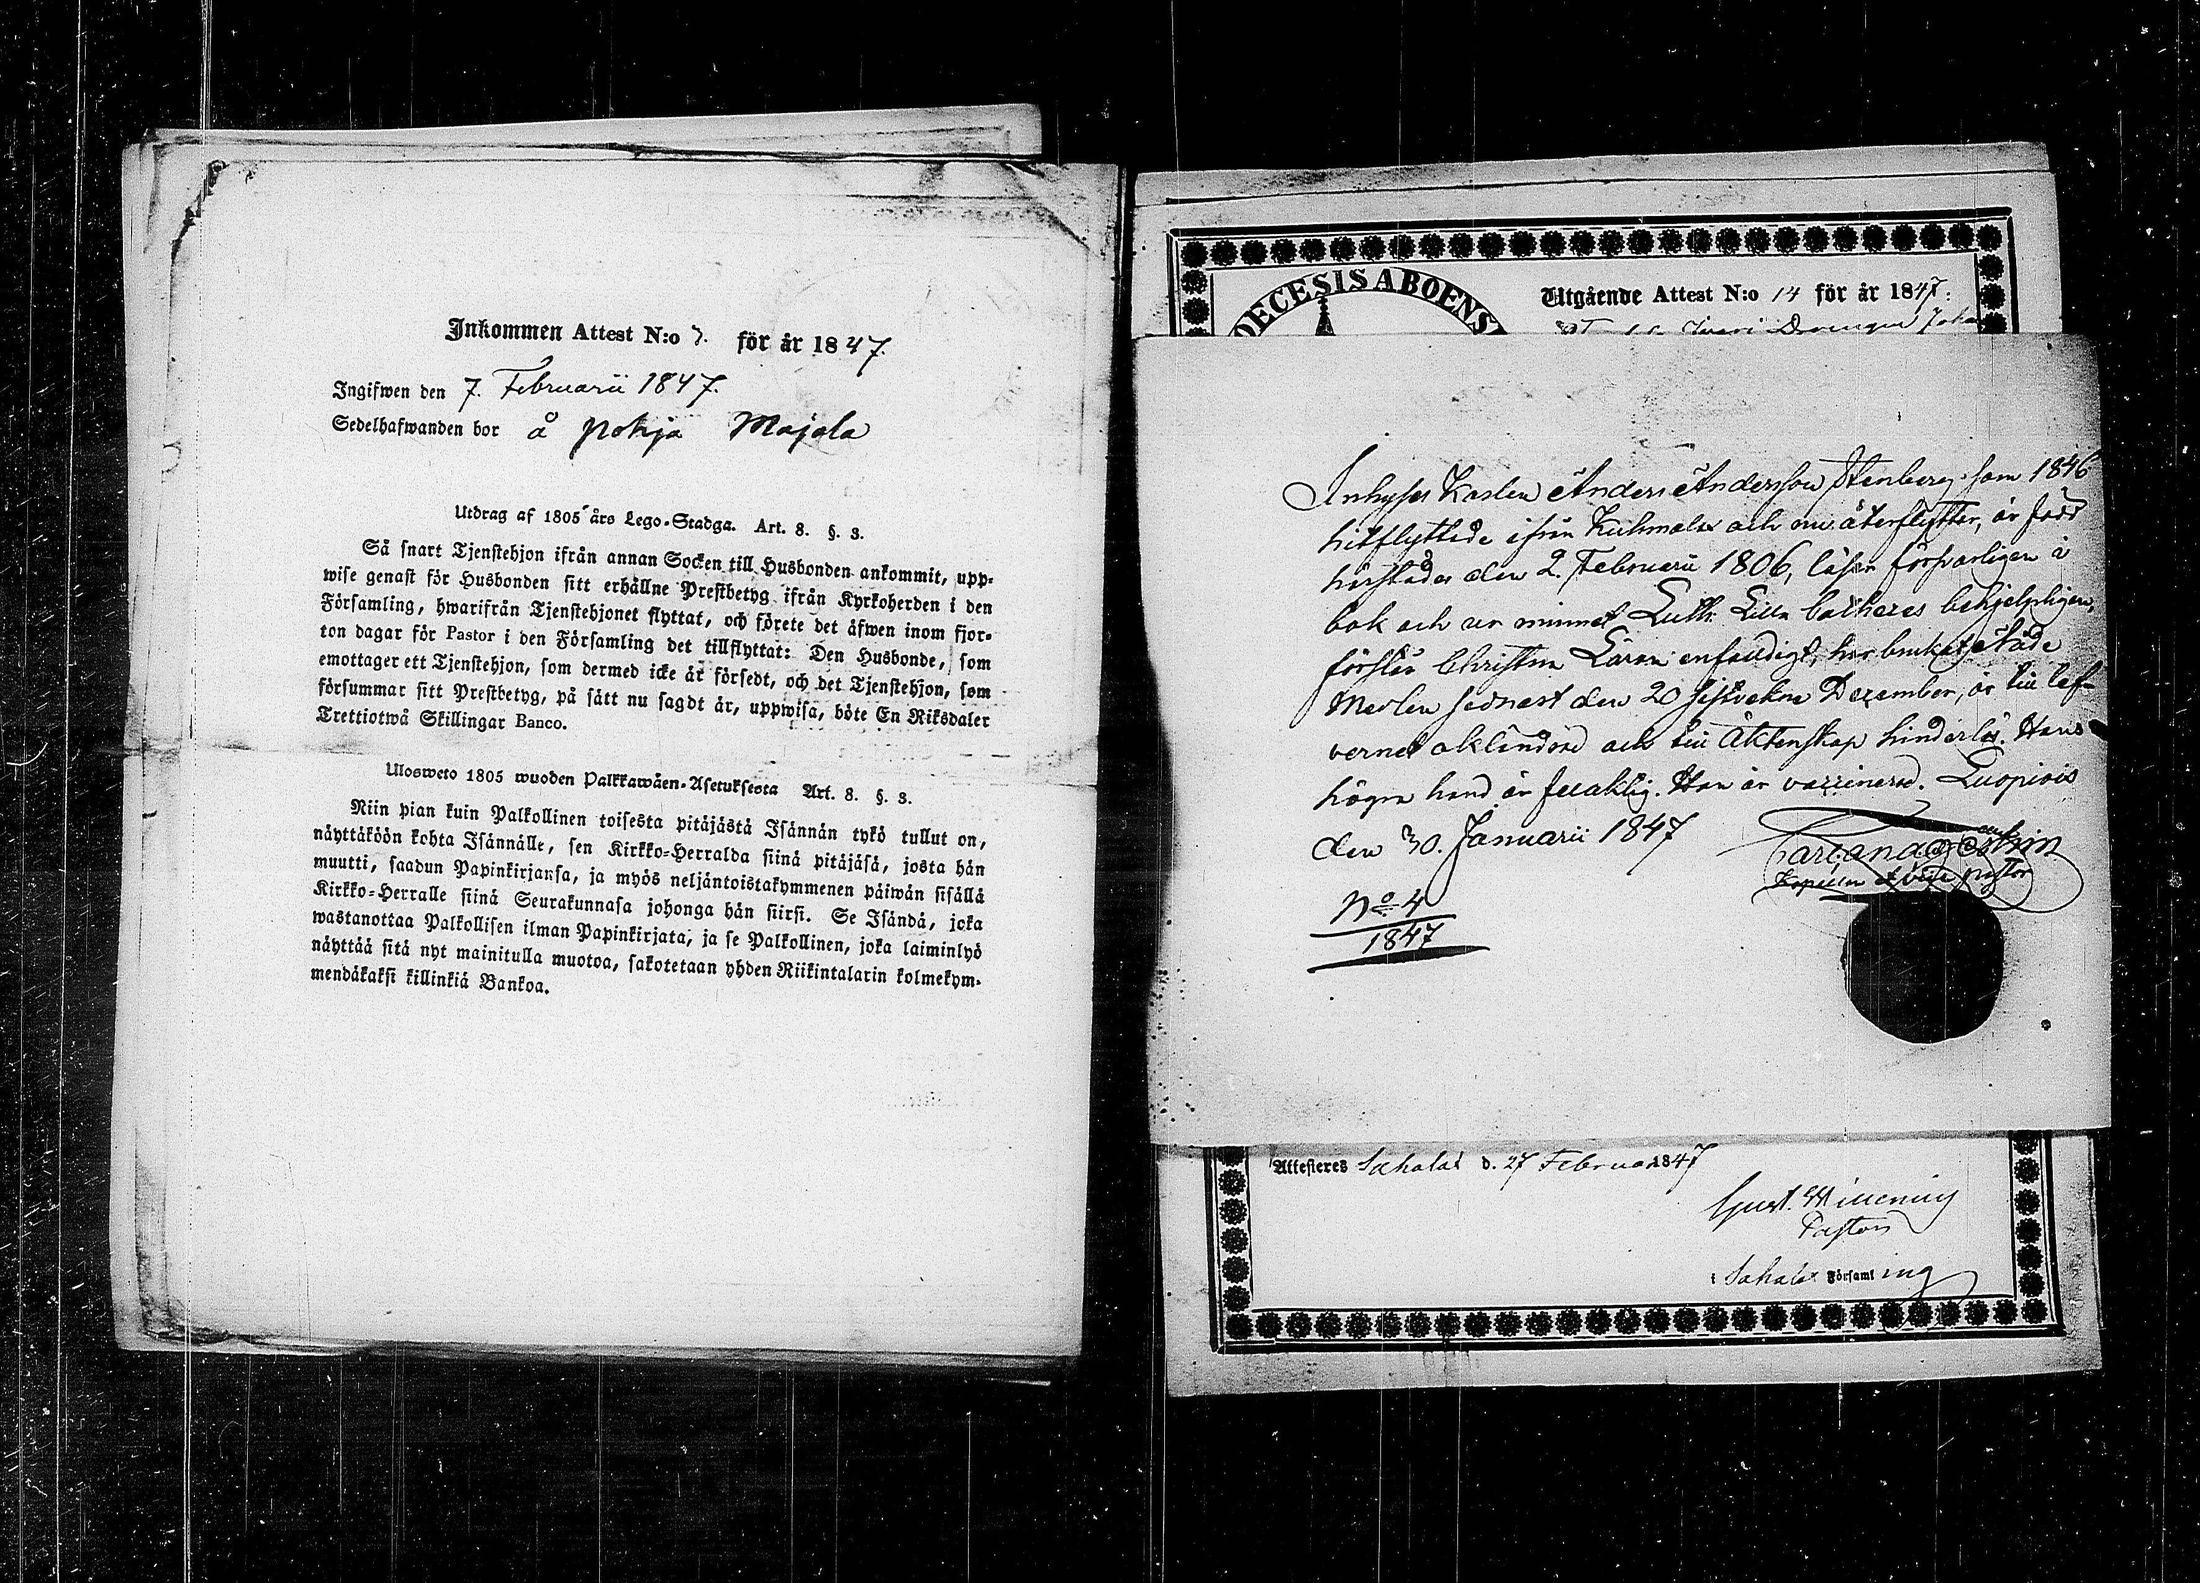 Inkommen Attest N:o 7. för år 1847.
Ingifwen den 7. Februarii 1847.
Sedelhafwanden bor å pohja Majala
Utdrag af 1805 års Lego-Stadga. Art. 8. §. 3.
Så snart Tjenstehjon ifrån annan Socken till Husbonden ankommit, upp-
wise genast för Husbonden sitt erhållne Prestbetyg ifrån Kyrkoherden i den
Församling, hwarifrån Tjenstehjonet flyttat, och förete det äfwen inom fjor-
ton dagar för Pastor i den Församling det tillflyttat: Den Husbonde, som
emottager ett Tjenstehjon, som dermed icke är försedt, och det Tjenstehjon, som
försummar sitt Prestbetyg, på sätt nu sagdt är, uppwisa, böte En Riksdaler
Trettiotwå Skillingar Banco.
Ulosweto 1805 wuoden Palkkawäen-Asetuksesta Art. 8. §. 3.
Niin pian kuin Palkollinen toisesta pitäjästä Isännän tykö tullut on,
näyttäköön kohta Isännälle, sen Kirkko-Herralda siinä pitäjäsä, josta hän
muutti, saadun Papinkirjansa, ja myös neljäntoistakymmenen päiwän sisällä
Kirkko-Herralle siinä Seurakunnasa johonga hän siirsi. Se Isändä, joka
wastanottaa Palkollisen ilman Papinkirjata, ja se Palkollinen, joka laiminlyö
näyttää sitä nyt mainitulla muotoa, sakotetaan yhden Riikintalarin kolmekym-
mendäkaksi killinkiä Bankoa.
DECESIS ABOENS
Utgående Attest N:o 14 för år 1847:
Inhyses Karlen Anders Andersson Stenberg som 1846
hitflyttade ifrån Kuhmalax och nu återflyttar, är född
härstädes den 2. Februarii 1806, läser försvarligen i
bok och ur minnet Luth. Lilla Catheches behjelpligen,
förstår Christna Läran enfaldigt, har brukat Nåde
Medlen sednast den 20 sistvekne December, är till lef-
vernet oklandrad och till Äktenskap hinderlös. Hans
högra hand är felaktig. Han är vaccinerad. Luopiois
den 30. Januarii 1847
Kapellan & vice pastor
No 4
1847
Attesteres Sahalax d. 27 Februari 1847
Gust. Willenius
Pastor
i Sahalax Församling